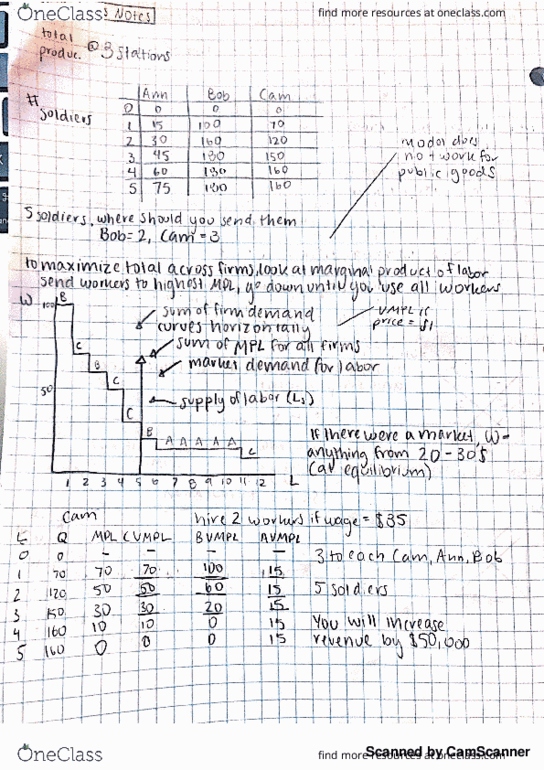 OneClass
s Notes
find more resources at oneclass.com
total
produc. @ 3 stations
# soldiers
Ann Bob Cam
0 0 0 0
1 15 100 70
2 30 160 120
3 45 180 150
4 60 180 160
5 75 180 160
model does
not work for
public goods
5 soldiers, where should you send them
Bob=2, Cam=3
to maximize total across firms, look at marginal product of labor
send workers to highest MPL, go down until you use all workers
W
100
B
C
B
C
C
50
B
A A A A A
C
sum of firm demand
curves horizontally
sum of MPL for all firms
market demand for labor
supply of labor (Ls)
VMPL if
price = $1
If there were a market, W=
anything from 20-30$
(at equilibrium)
1 2 3 4 5 6 7 8 9 10 11 12 L
Cam
hire 2 workers if wage = $35
L Q MPL CVMPL BVMPL AVMPL
0 0 – – – –
1 70 70 70 100 15
2 120 50 50 60 15
3 150 30 30 20 15
4 160 10 10 0 15
5 160 0 0 0 15
3 to each Cam, Ann, Bob
5 soldiers
You will increase
revenue by $50,000
OneClass
find more resources at oneclass.com
Scanned by CamScanner